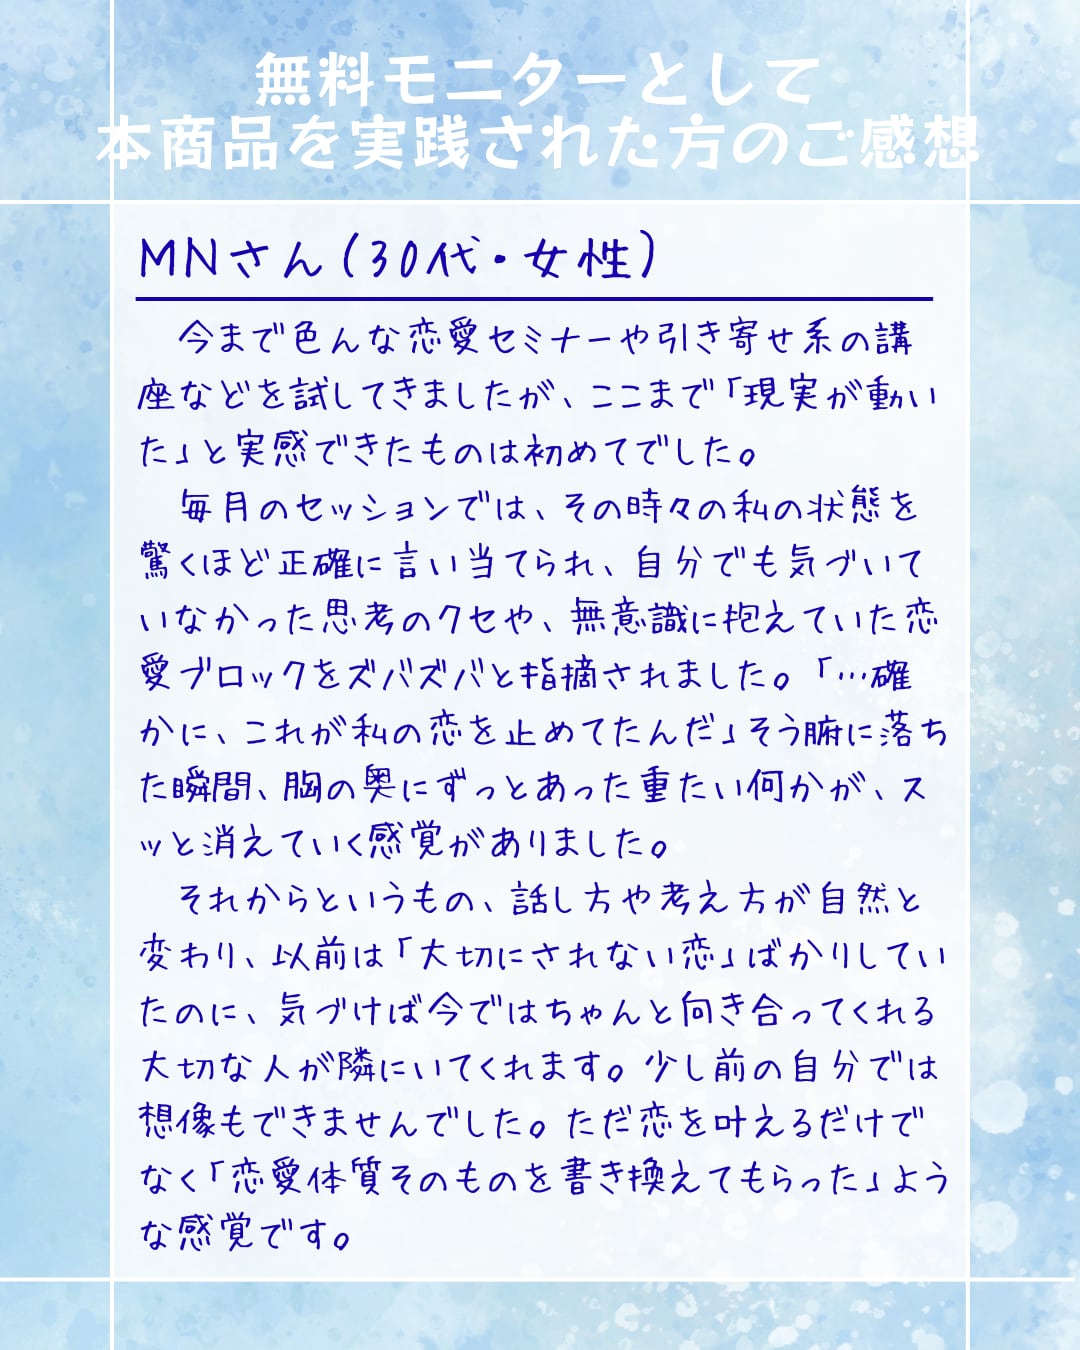 無料モニターとして
本商品を実践された方のご感想
MNさん(30代・女性)
今まで色んな恋愛セミナーや引き寄せ系の講
座などを試してきましたが、ここまで「現実が動い
た」と実感できたものは初めてでした。
毎月のセッションでは、その時々の私の状態を
驚くほど正確に言い当てられ、自分でも気づいて
いなかった思考のクセや、無意識に抱えていた恋
愛ブロックをズバズバと指摘されました。「…確
かに、これが私の恋を止めてたんだ」そう腑に落ち
た瞬間、胸の奥にずっとあった重たい何かが、ス
ッと消えていく感覚がありました。
それからというもの、話し方や考え方が自然と
変わり、以前は「大切にされない恋」ばかりしてい
たのに、気づけば今ではちゃんと向き合ってくれる
大切な人が隣にいてくれます。少し前の自分では
想像もできませんでした。ただ恋を叶えるだけで
なく「恋愛体質そのものを書き換えてもらった」よう
な感覚です。